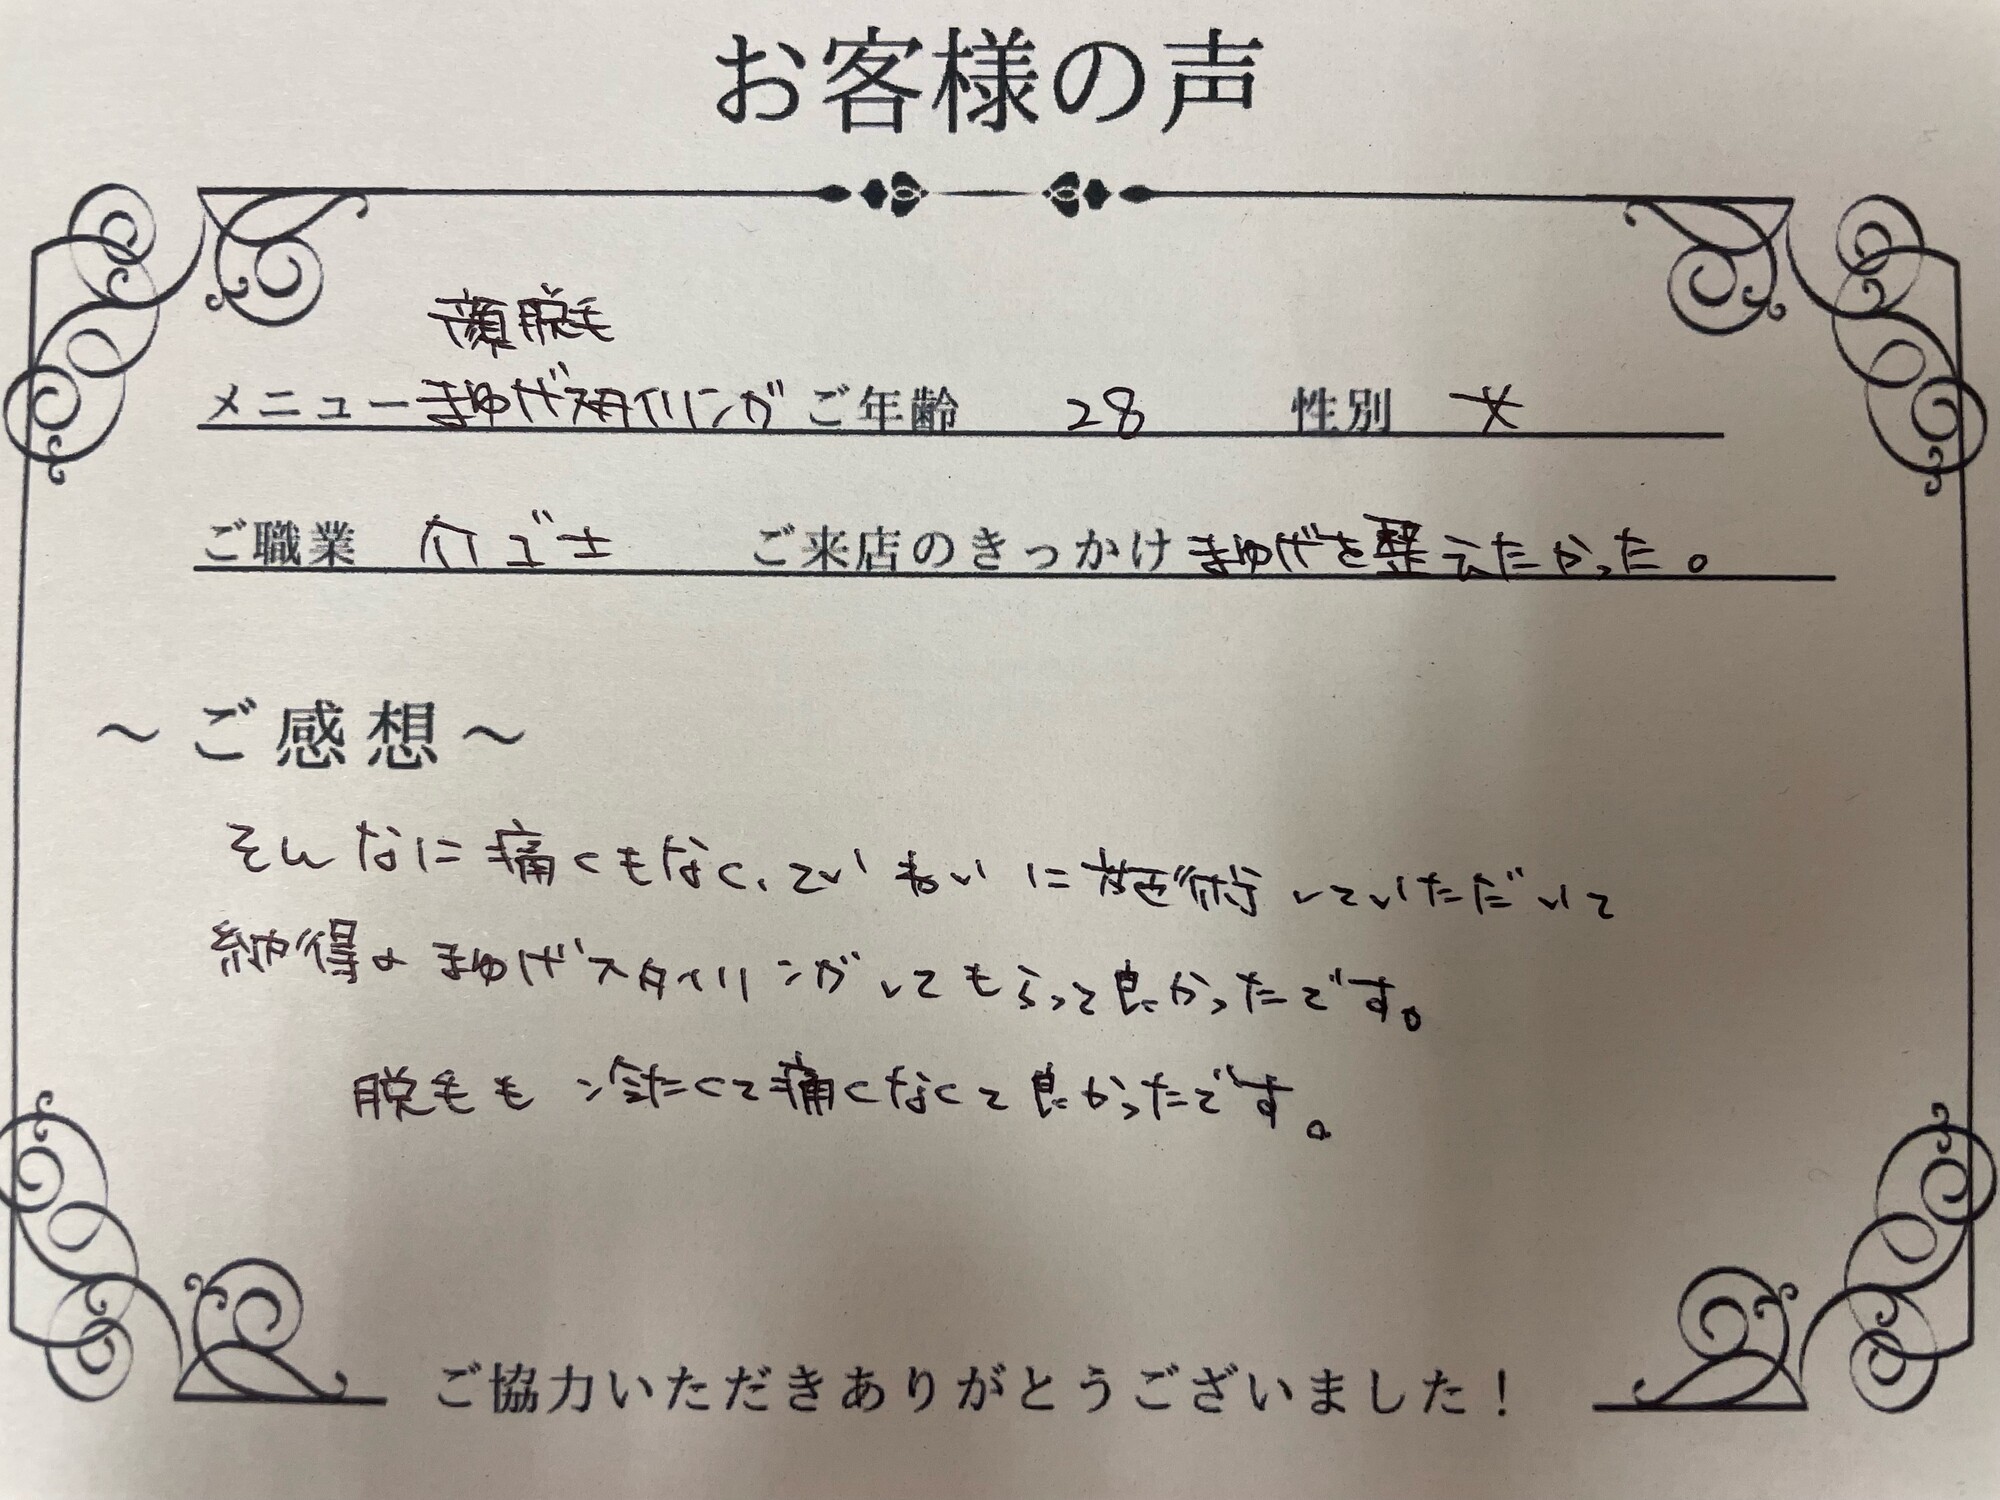 お客様の声
顔脱毛
メニュー まゆげスタイリング ご年齢 28 性別 女
ご職業 介ゴ士 ご来店のきっかけ まゆげを整えたかった。
～ご感想～
そんなに痛くもなく、ていねいに施術していただいて
納得のまゆげスタイリングしてもらって良かったです。
脱毛も冷たくて痛くなくて良かったです。
ご協力いただきありがとうございました！